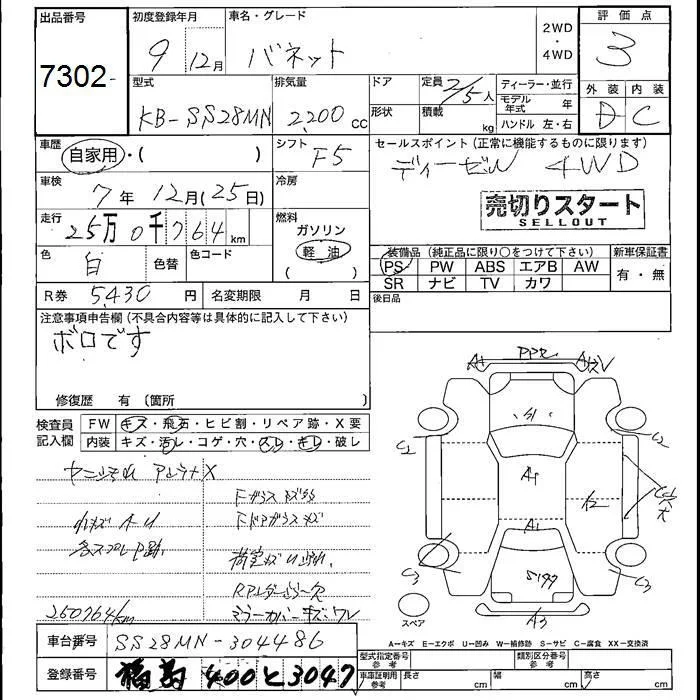 出品番号 初度登録年月 車名・グレード 2WD・4WD 評価点
7302- 9 12月 バネット 3
型式 排気量 ドア 定員 2/5人 ディーラー・並行 外装 内装
KB-SS28MN 2,200cc 形状 積載 kg モデル年式 年 D C
ハンドル 左・右
車歴 自家用・( ) シフト F5 セールスポイント (正常に機能するものに限ります)
ディーゼル 4WD
車検 7年12月(25日) 冷房
売切りスタート
SELLOUT
走行 25万0千764km 燃料 ガソリン 軽油 ( )
色 白 色替 色コード
装備品 (純正品に限り○をつけて下さい) 新車保証書
PS PW ABS エアB AW 有・無
SR ナビ TV カワ
R券 5,430円 名変期限 月 日 後日品
注意事項申告欄 (不具合内容等は具体的に記入して下さい)
ボロです
修復歴 有 (箇所 )
検査員記入欄 FW キズ・飛石・ヒビ割・リペア跡・X要
内装 キズ・汚レ・コゲ・穴・スレ・キレ・破レ
A1 PPモレ
S1
C2
A1
A2
A1
C3 C3
A3
Fガラスキズ
Fドアガラスキズ
各スプレーP跡
250764km
ミラーカバーキズワレ
スペア
A=キズ E=エクボ U=凹み W=補修跡 S=サビ C=腐食 XX=交換済
車台番号 SS28MN-304486
型式指定番号 参考 類別区分番号 参考
登録番号 400と3047
車庫証明用 参考 長さ cm 幅 cm 高さ cm